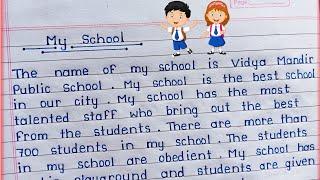 Page:
My School
The name of my school is Vidya Mandir
Public School. My school is the best school
in our city. My school has the most
talented staff who bring out the best
from the students. There are more than
700 students in my school. The students
in my school are obedient. My school has
playground and students are given